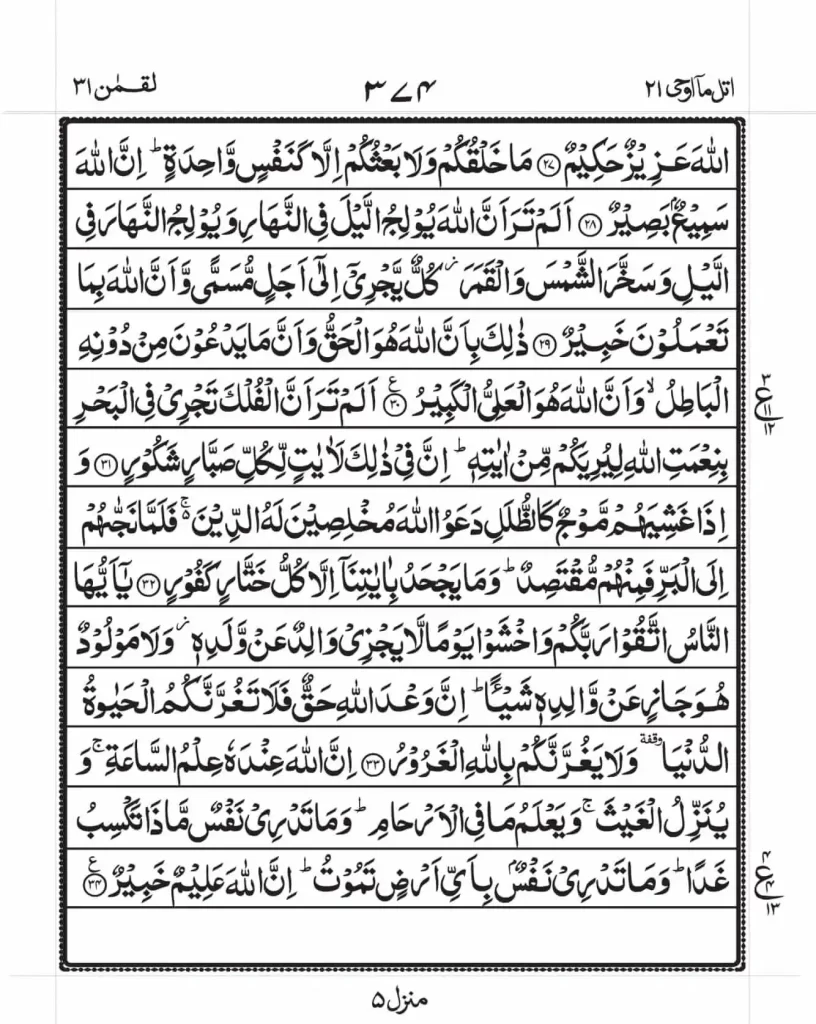 اتل ماۤ اوحی ۲۱
۳۷۴
لقمٰن ۳۱
اللّٰهَ عَزِیْزٌ حَكِیْمٌ ۝۲۷ مَا خَلْقُكُمْ وَ لَا بَعْثُكُمْ اِلَّا كَنَفْسٍ وَّاحِدَةٍ ؕ اِنَّ اللّٰهَ
سَمِیْعٌۢ بَصِیْرٌ ۝۲۸ اَلَمْ تَرَ اَنَّ اللّٰهَ یُوْلِجُ الَّیْلَ فِی النَّهَارِ وَ یُوْلِجُ النَّهَارَ فِی
الَّیْلِ وَ سَخَّرَ الشَّمْسَ وَ الْقَمَرَ ؗ كُلٌّ یَّجْرِیْۤ اِلٰۤی اَجَلٍ مُّسَمًّی وَّ اَنَّ اللّٰهَ بِمَا
تَعْمَلُوْنَ خَبِیْرٌ ۝۲۹ ذٰلِكَ بِاَنَّ اللّٰهَ هُوَ الْحَقُّ وَ اَنَّ مَا یَدْعُوْنَ مِنْ دُوْنِهِ
الْبَاطِلُ ۙ وَ اَنَّ اللّٰهَ هُوَ الْعَلِیُّ الْكَبِیْرُ ۝۳۰ ع اَلَمْ تَرَ اَنَّ الْفُلْكَ تَجْرِیْ فِی الْبَحْرِ
۳ ع ۱۱ ۱۲
بِنِعْمَتِ اللّٰهِ لِیُرِیَكُمْ مِّنْ اٰیٰتِهٖ ؕ اِنَّ فِیْ ذٰلِكَ لَاٰیٰتٍ لِّكُلِّ صَبَّارٍ شَكُوْرٍ ۝۳۱ وَ
اِذَا غَشِیَهُمْ مَّوْجٌ كَالظُّلَلِ دَعَوُا اللّٰهَ مُخْلِصِیْنَ لَهُ الدِّیْنَ ۚ۬ فَلَمَّا نَجّٰىهُمْ
اِلَی الْبَرِّ فَمِنْهُمْ مُّقْتَصِدٌ ؕ وَ مَا یَجْحَدُ بِاٰیٰتِنَاۤ اِلَّا كُلُّ خَتَّارٍ كَفُوْرٍ ۝۳۲ یٰۤاَیُّهَا
النَّاسُ اتَّقُوْا رَبَّكُمْ وَ اخْشَوْا یَوْمًا لَّا یَجْزِیْ وَالِدٌ عَنْ وَّلَدِهٖ ؗ وَ لَا مَوْلُوْدٌ
هُوَ جَازٍ عَنْ وَّالِدِهٖ شَیْـًٔا ؕ اِنَّ وَعْدَ اللّٰهِ حَقٌّ فَلَا تَغُرَّنَّكُمُ الْحَیٰوةُ
الدُّنْیَا وقفة وَ لَا یَغُرَّنَّكُمْ بِاللّٰهِ الْغَرُوْرُ ۝۳۳ اِنَّ اللّٰهَ عِنْدَهٗ عِلْمُ السَّاعَةِ ۚ وَ
یُنَزِّلُ الْغَیْثَ ۚ وَ یَعْلَمُ مَا فِی الْاَرْحَامِ ؕ وَ مَا تَدْرِیْ نَفْسٌ مَّا ذَا تَكْسِبُ
غَدًا ؕ وَ مَا تَدْرِیْ نَفْسٌۢ بِاَیِّ اَرْضٍ تَمُوْتُ ؕ اِنَّ اللّٰهَ عَلِیْمٌ خَبِیْرٌ ۝۳۴ ع
۴ ع ۴ ۱۳
منزل ۵